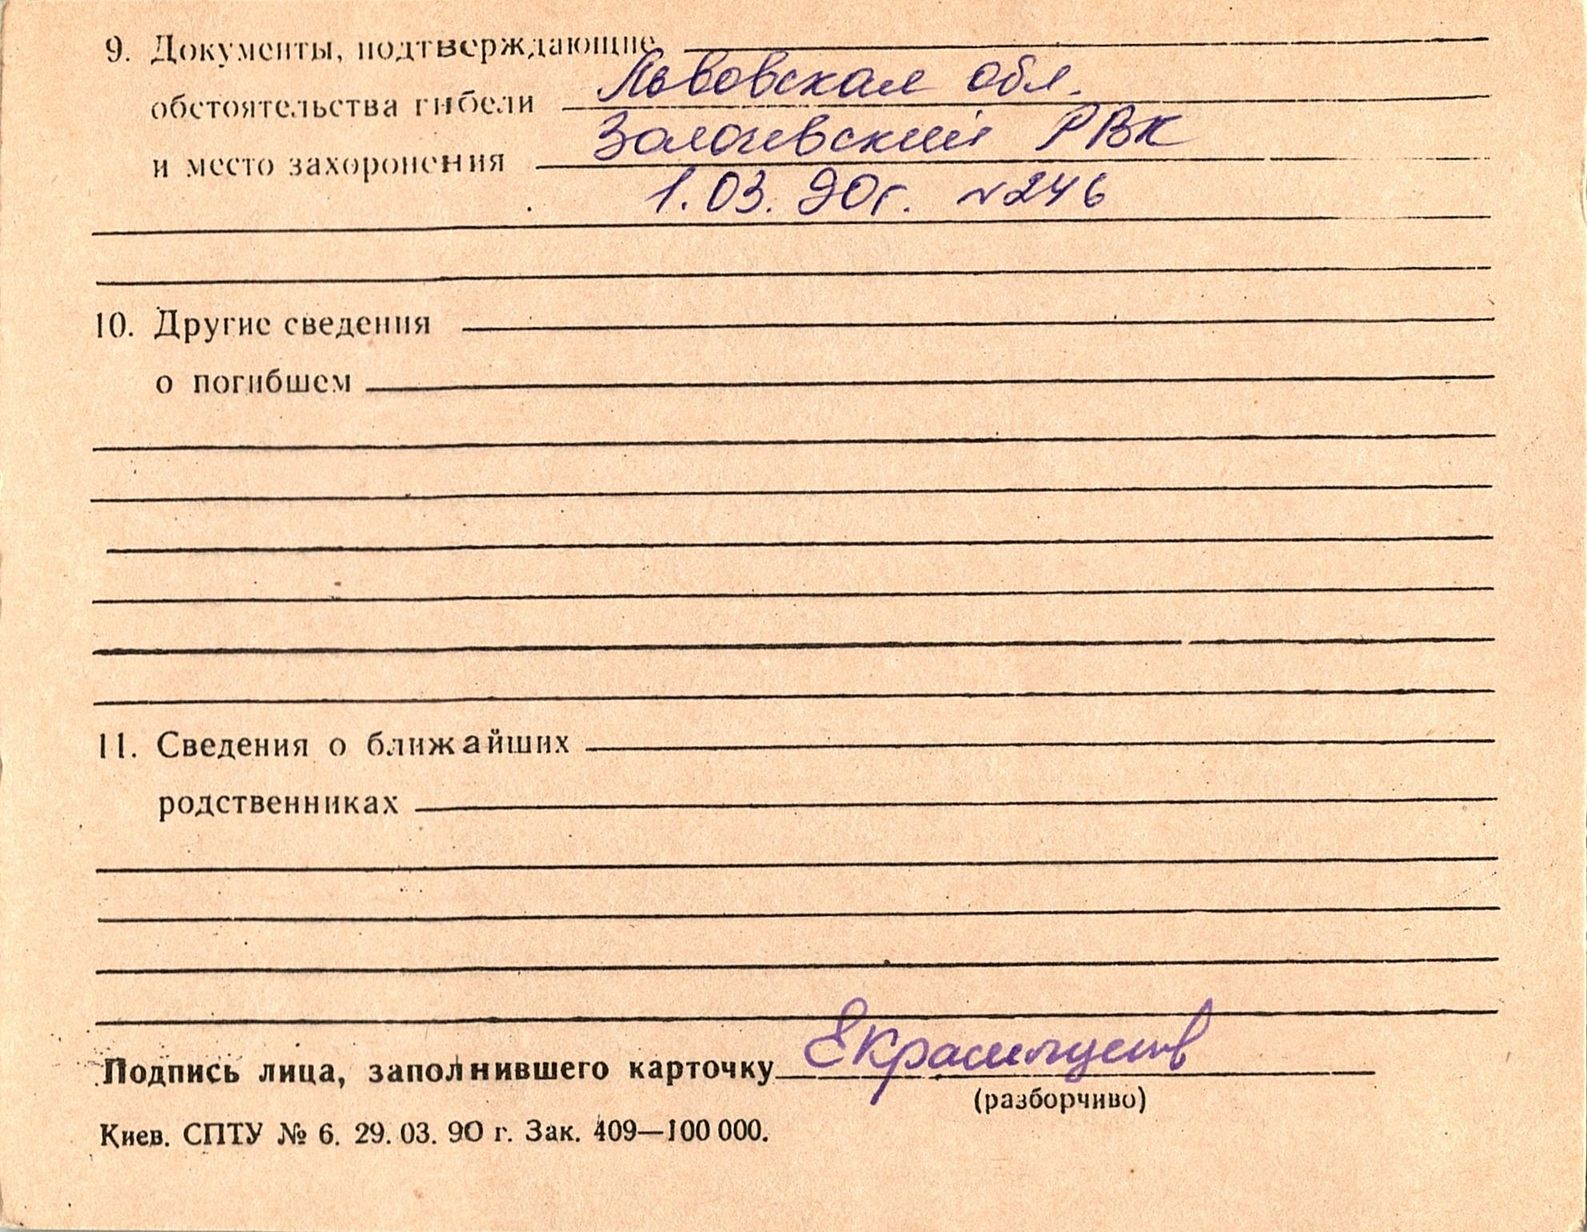 9. Документы, подтверждающие
Львовская обл.
обстоятельства гибели
Золочевский РВК
и место захоронения
1.03.90г. №246
10. Другие сведения
о погибшем
11. Сведения о ближайших
родственниках
Подпись лица, заполнившего карточку
(разборчиво)
Киев. СПТУ № 6. 29. 03. 90 г. Зак. 409—100 000.